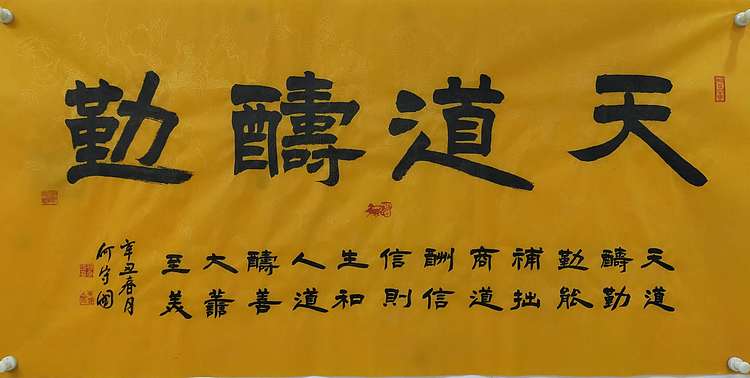 天道醻勤
天道
醻勤
勤能
補拙
商道
酬信
信則
生和
人道
醻善
大譱
至美
辛丑春月
何守國